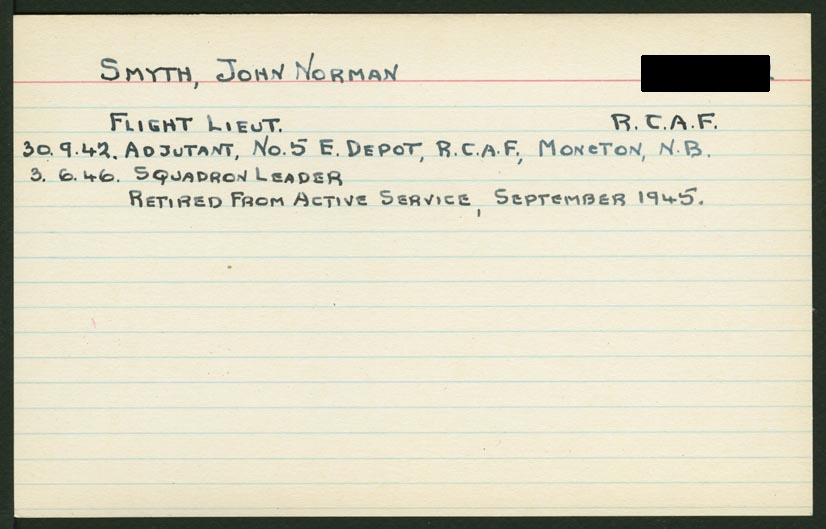 SMYTH, JOHN NORMAN
FLIGHT LIEUT. R.C.A.F.
30.9.42. ADJUTANT, No.5 E. DEPOT, R.C.A.F., MONCTON, N.B.
3. 6.46. SQUADRON LEADER
RETIRED FROM ACTIVE SERVICE, SEPTEMBER 1945.